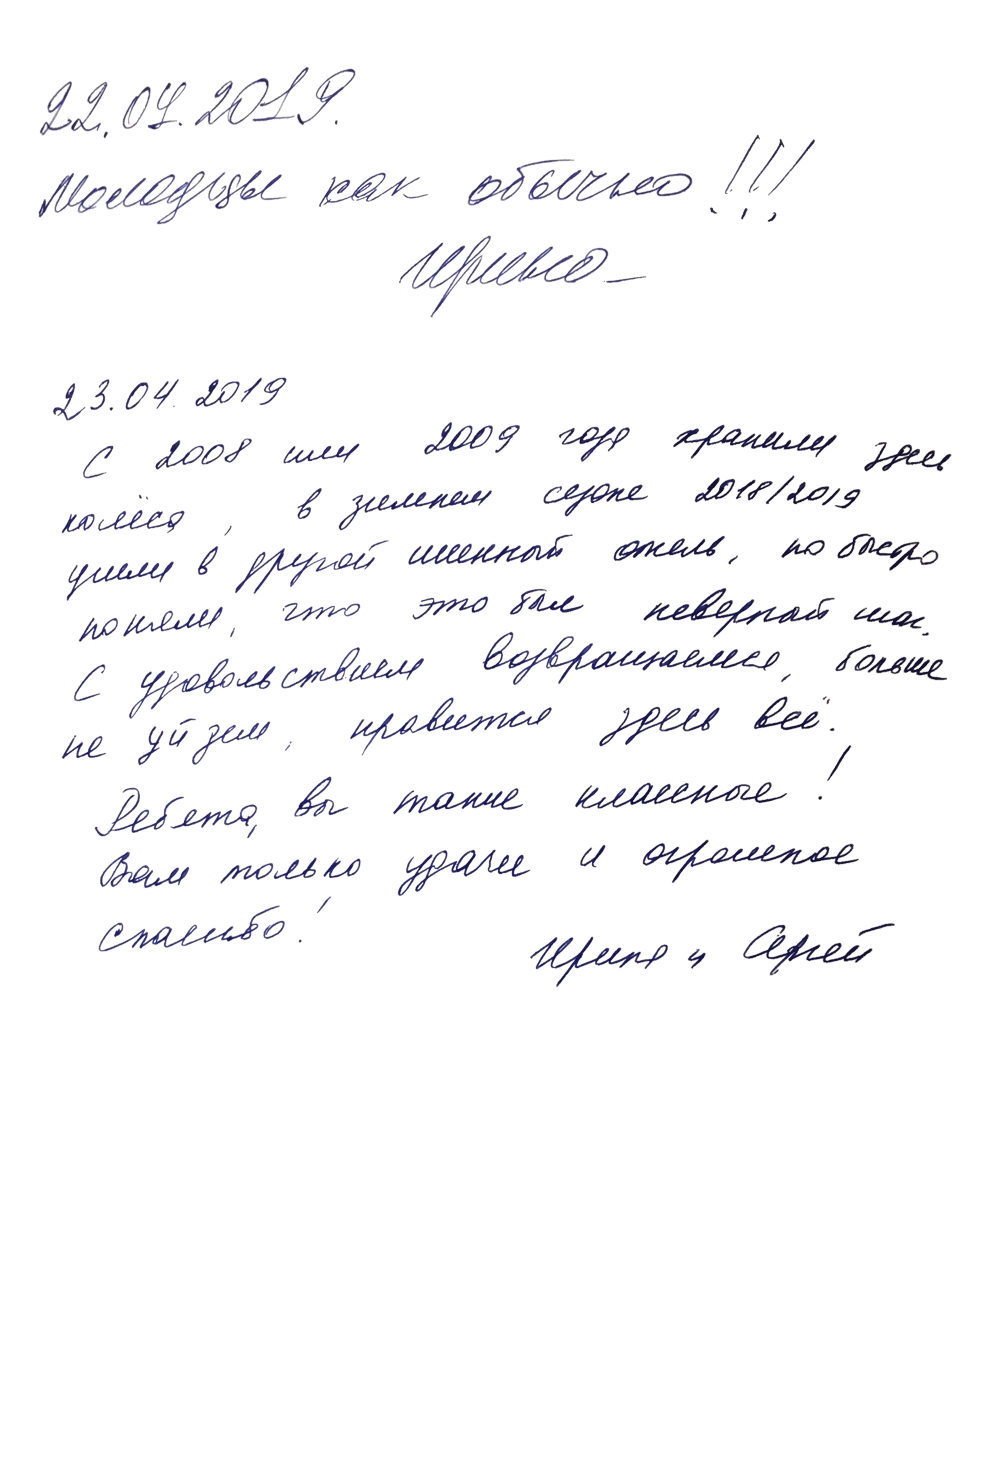 22.04.2019.
Молодцы как обычно!!!
Ирина
23.04.2019
С 2008 или 2009 года хранили здесь
колёса, в зимнем сезоне 2018/2019
ушли в другой шинный отель, но быстро
поняли, что это был неверный шаг.
С удовольствием возвращаемся, больше
не уйдем, нравится здесь всё.
Ребята, вы такие классные!
Вам только удачи и огромное
спасибо!
Ирина и Сергей